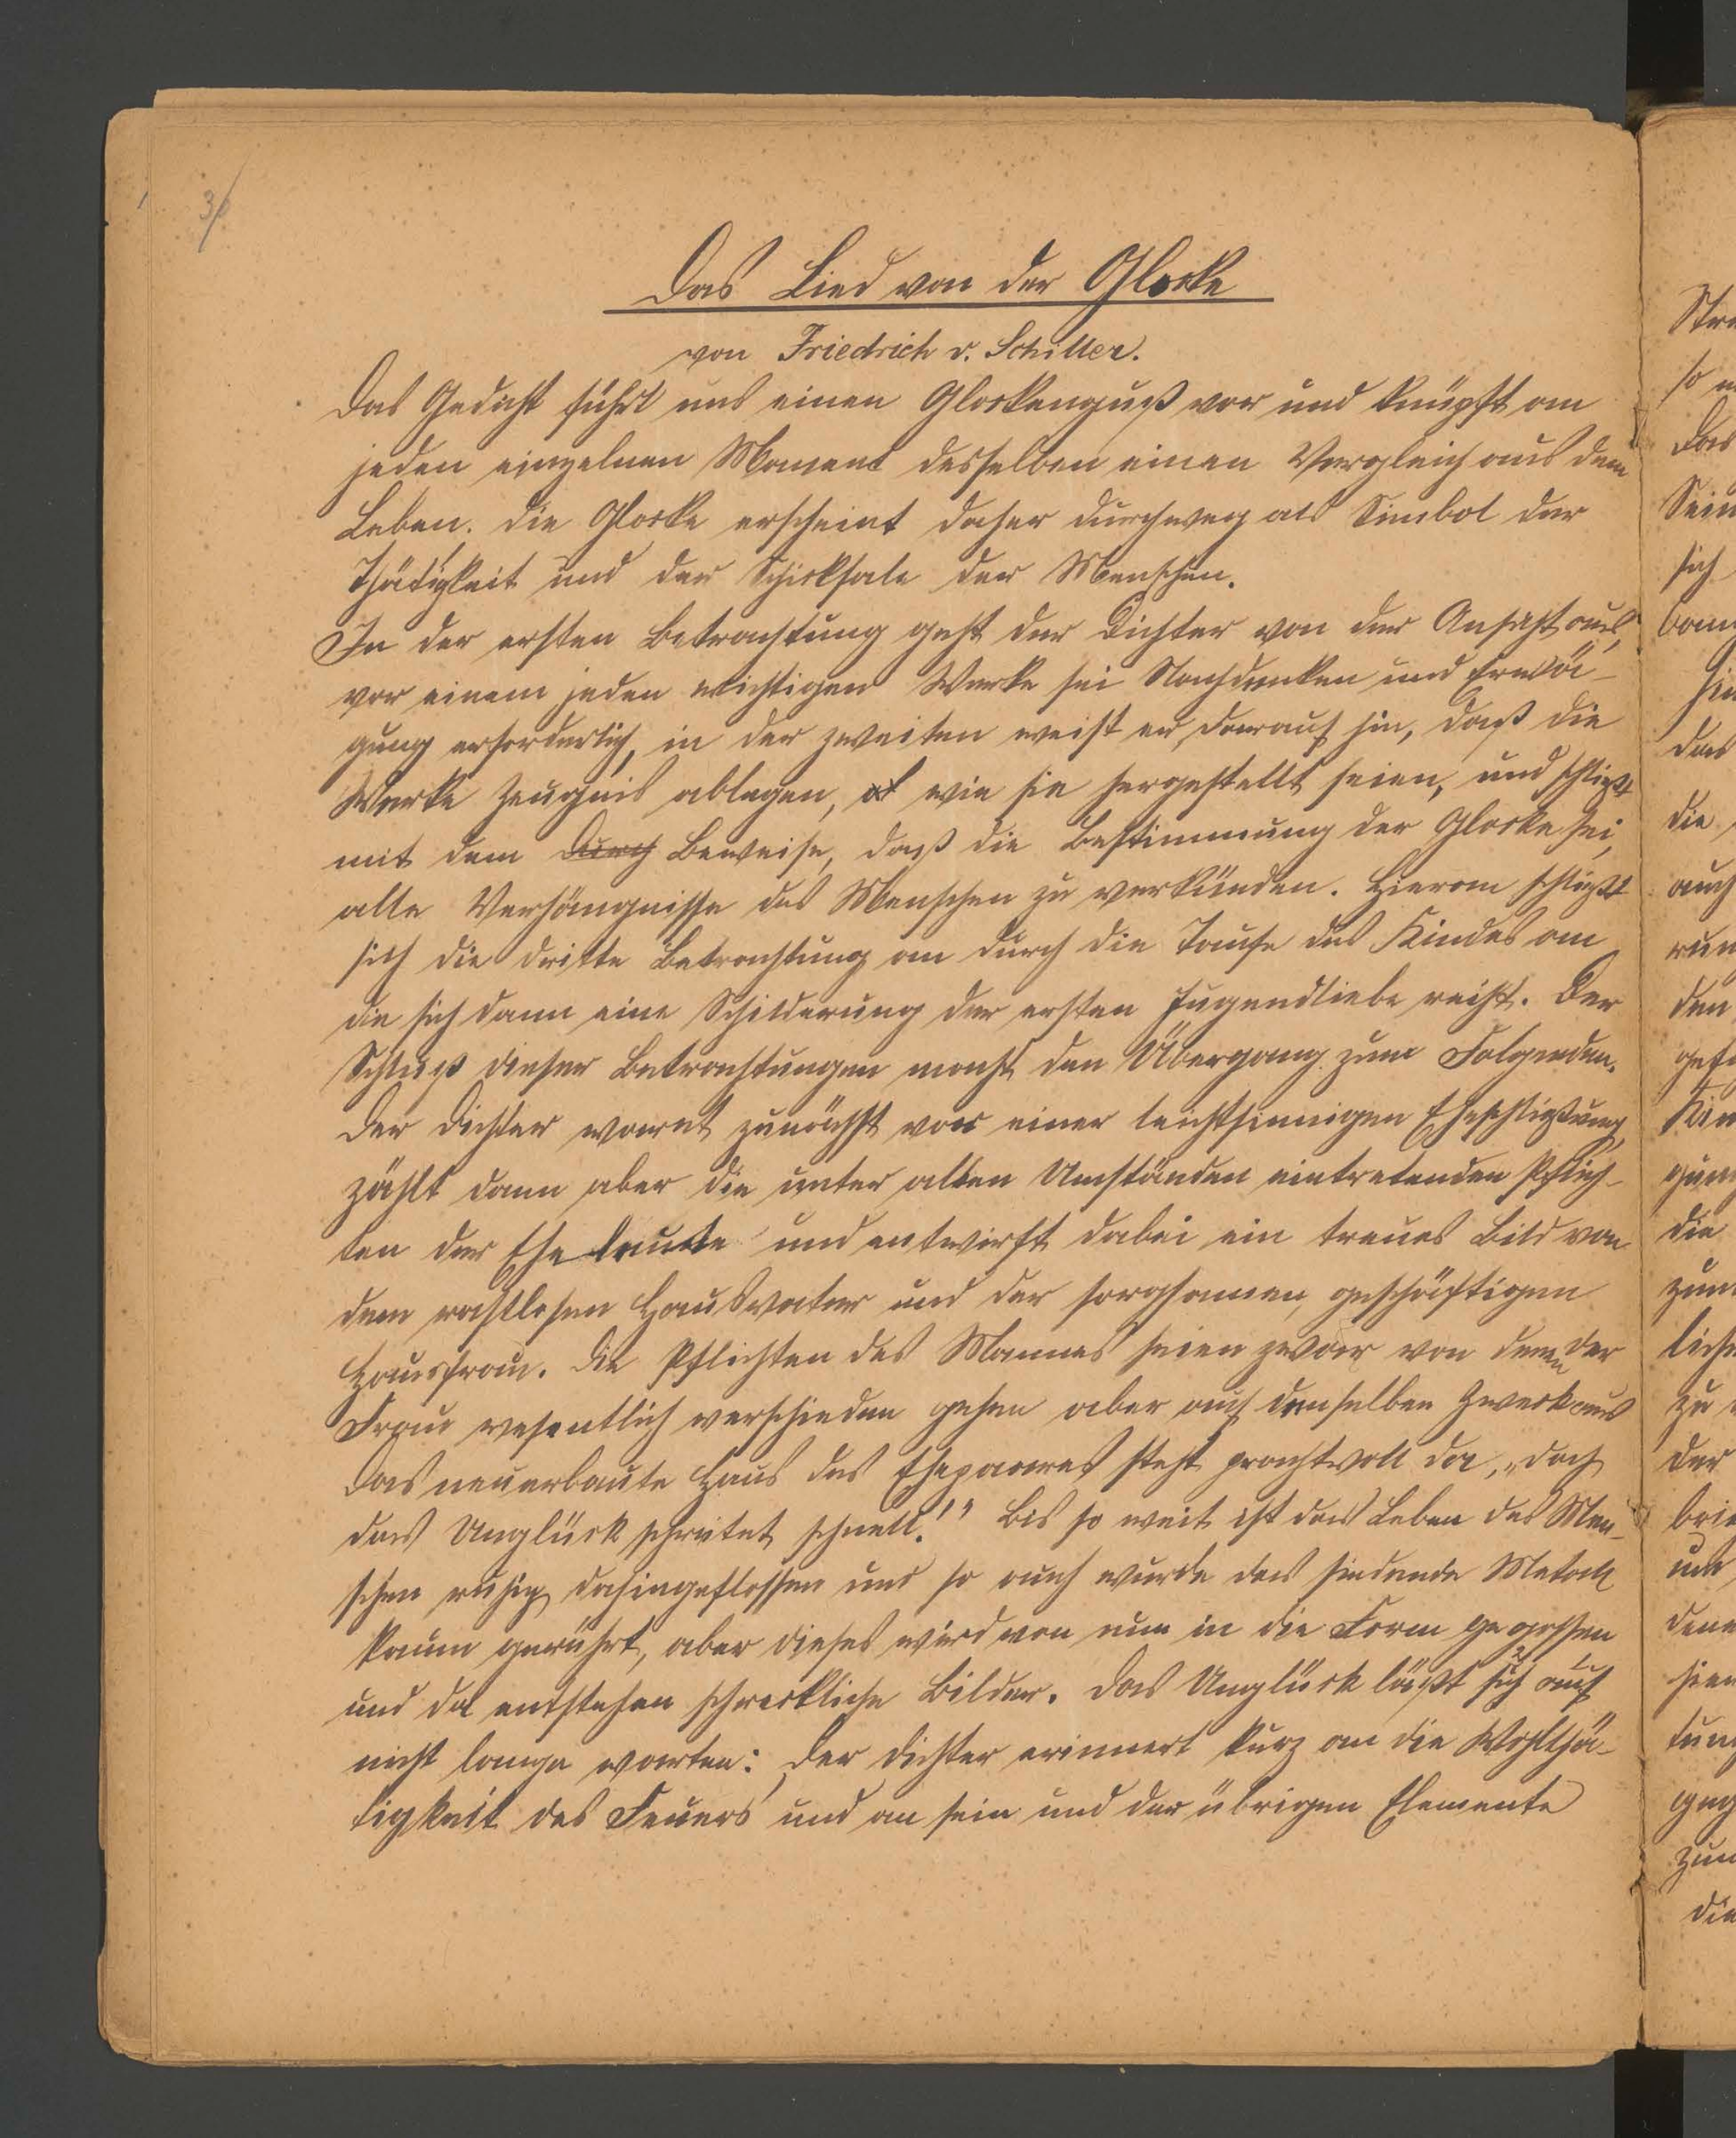 3/
Das Lied von der Glocke
von Friedrich v. Schiller.
Das Gedicht führt uns einen Glockenguß vor und knüpft an
jeden einzelnen Moment desselben einen Vergleich aus dem
Leben. Die Glocke erscheint daher durchweg als Simbol der
Thätigkeit und der Schicksale der Menschen.
In der ersten Betrachtung geht der Dichter von der Ansicht aus,
vor einem jeden wichtigen Werke sei Nachdenken und Erwä-
gung erforderlich, in der zweiten weist er darauf hin, daß die
Werke Zeugnis ablegen, wie sie hergestellt seien, und schließt
mit dem Durch Beweise, daß die Bestimmung der Glocke sei,
alle Verhängnisse des Menschen zu verkünden. Hieran schließt
sich die dritte Betrachtung an durch die Taufe des Kindes an
die sich dann eine Schilderung der ersten Jugendliebe reiht. Der
Schluß dieser Betrachtungen macht den Übergang zum Folgenden.
Der Dichter warnt zunächst vor einer leichtsinnigen Eheschließung,
zählt dann aber die unter allen Umständen eintretenden Pflich-
ten der Eheleute und entwirft dabei ein treues Bild von
dem rastlosen Hausvater und der sorgsamen, geschäftigen
Hausfrau. Die Pflichten des Mannes seien zwar von denen der
Frau wesentlich verschieden gehen aber auf denselben Zweck aus
Das neuerbaute Haus des Ehepaares steht prachtvoll da, „doch
das Unglück schreitet schnell!" Bis so weit ist das Leben des Men-
schen ruhig dahingeflossen und so auch wurde das siedende Metall
kaum gerührt, aber dieses wird von nun in die Form gegossen
und da entstehen schreckliche Bilder. Das Unglück läßt sich auch
nicht lange warten: Der Dichter erinnert kurz an die Wohlthä-
tigkeit des Feuers und an sein und der übrigen Elemente